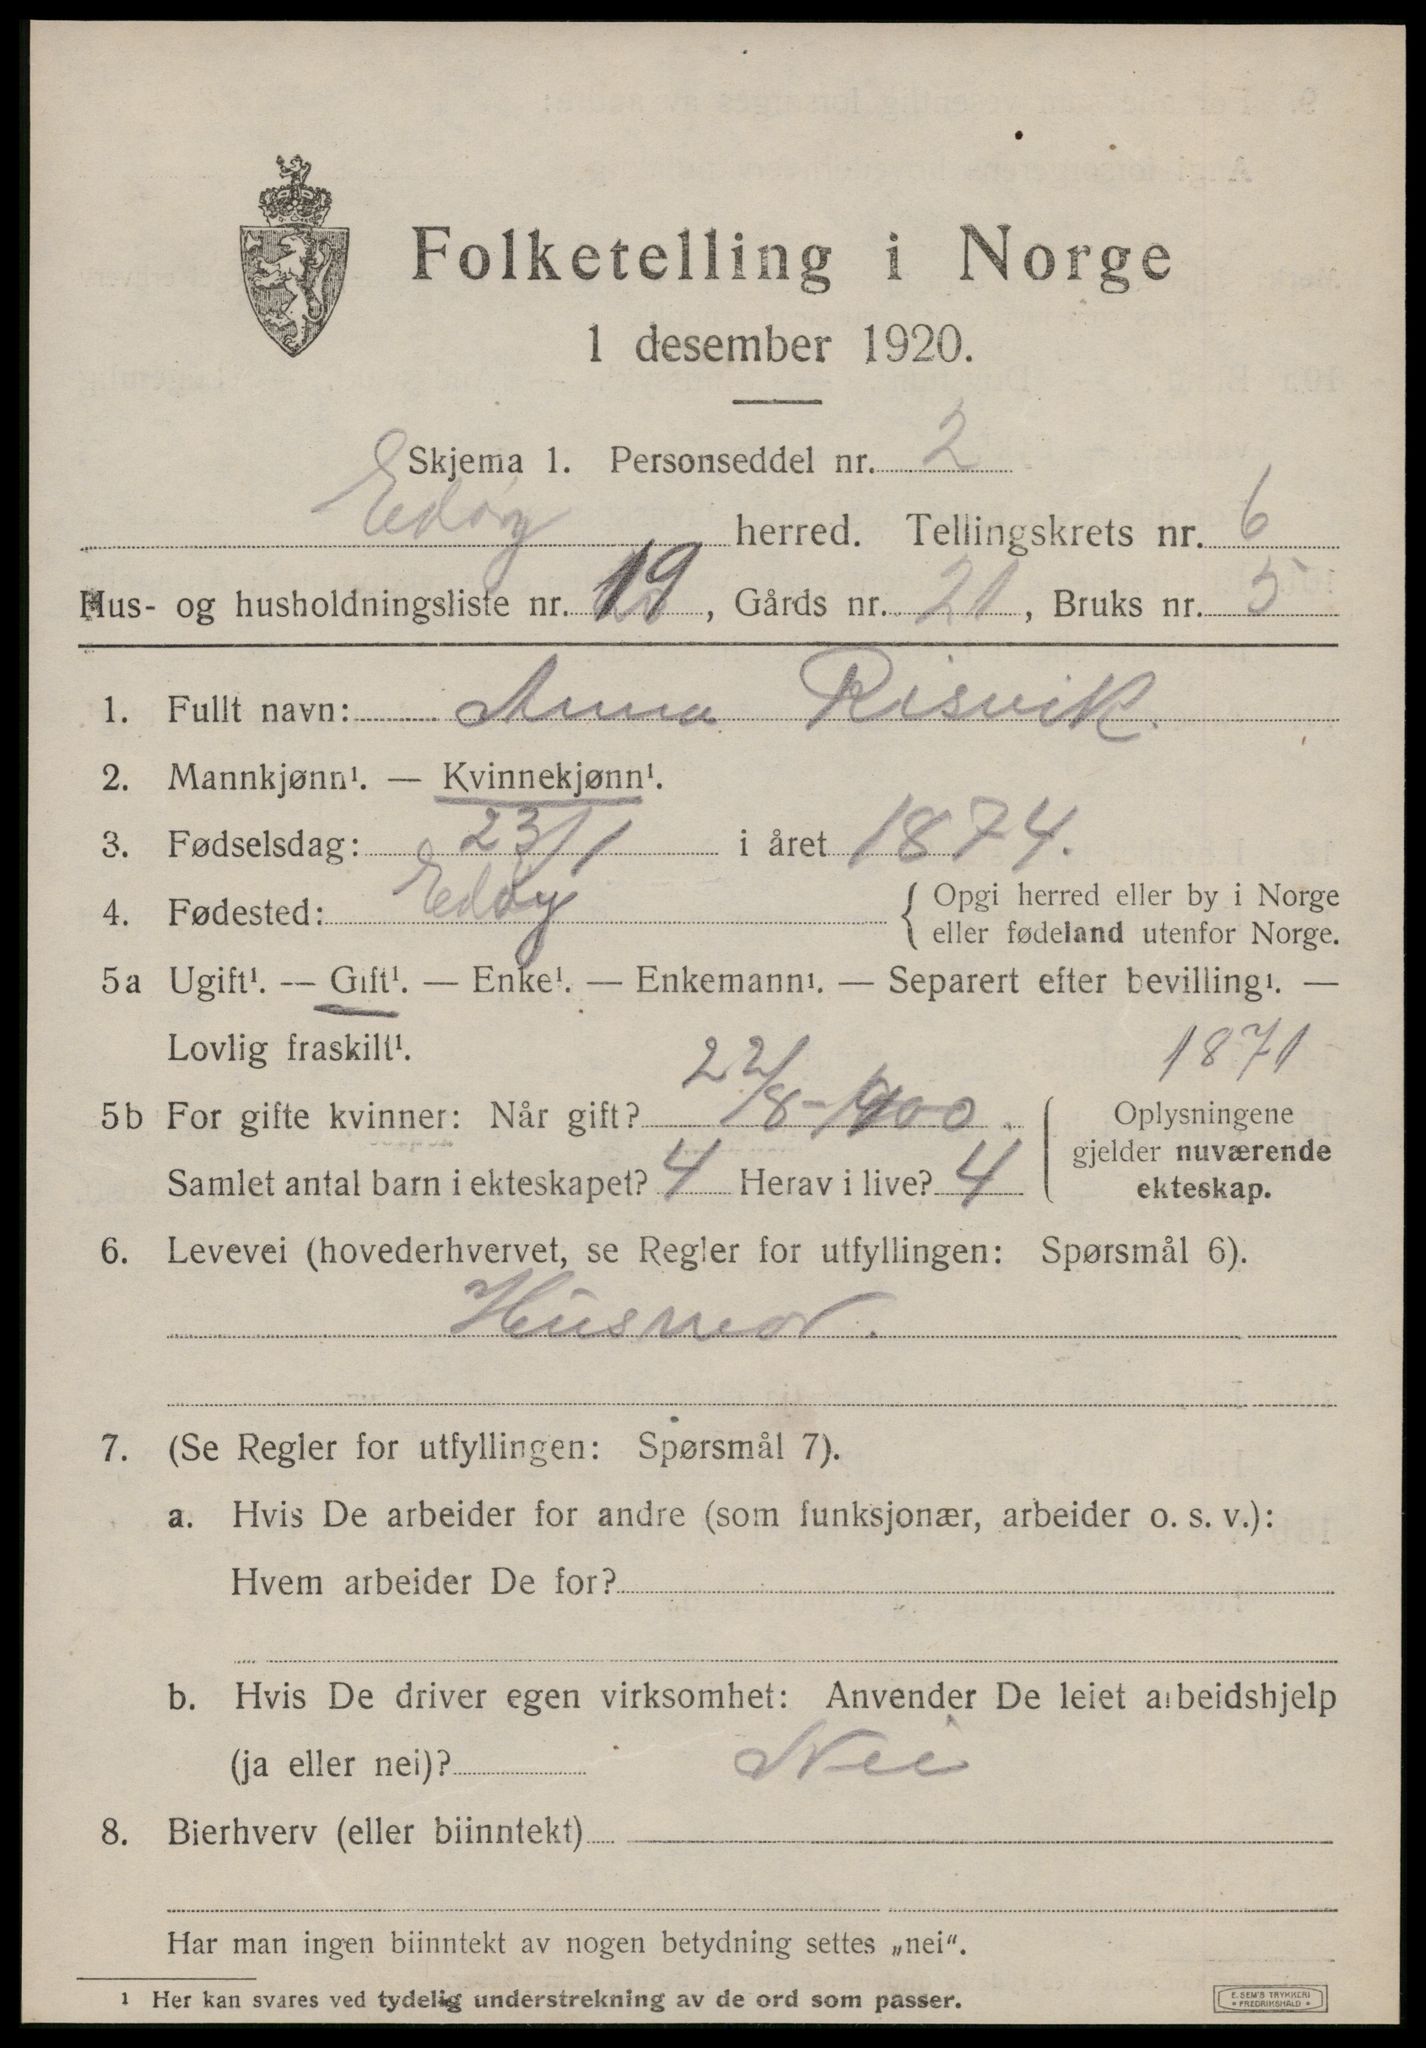 Folketelling i Norge
1 desember 1920.
Skjema 1. Personseddel nr. 2
Edøy herred. Tellingskrets nr. 6
Hus- og husholdningsliste nr. 19, Gårds nr. 21, Bruks nr. 5
1. Fullt navn: Anna Risvik.
2. Mannkjønn¹. — Kvinnekjønn¹.
3. Fødselsdag: 23/1 i året 1874.
4. Fødested: Edøy { Opgi herred eller by i Norge
eller fødeland utenfor Norge.
5a Ugift¹. — Gift¹. — Enke¹. — Enkemann¹. — Separert efter bevilling¹. —
Lovlig fraskilt¹. 1871
5b For gifte kvinner: Når gift? 22/8-1900. { Oplysningene
gjelder nuværende
Samlet antal barn i ekteskapet? 4 Herav i live? 4 ekteskap.
6. Levevei (hovederhvervet, se Regler for utfyllingen: Spørsmål 6).
Husmor.
7. (Se Regler for utfyllingen: Spørsmål 7).
a. Hvis De arbeider for andre (som funksjonær, arbeider o. s. v.):
Hvem arbeider De for?
b. Hvis De driver egen virksomhet: Anvender De leiet arbeidshjelp
(ja eller nei)? Nei
8. Bierhverv (eller biinntekt)
Har man ingen biinntekt av nogen betydning settes „nei“.
¹ Her kan svares ved tydelig understrekning av de ord som passer.
E. SEM'S TRYKKERI
• FREDRIKSHALD •